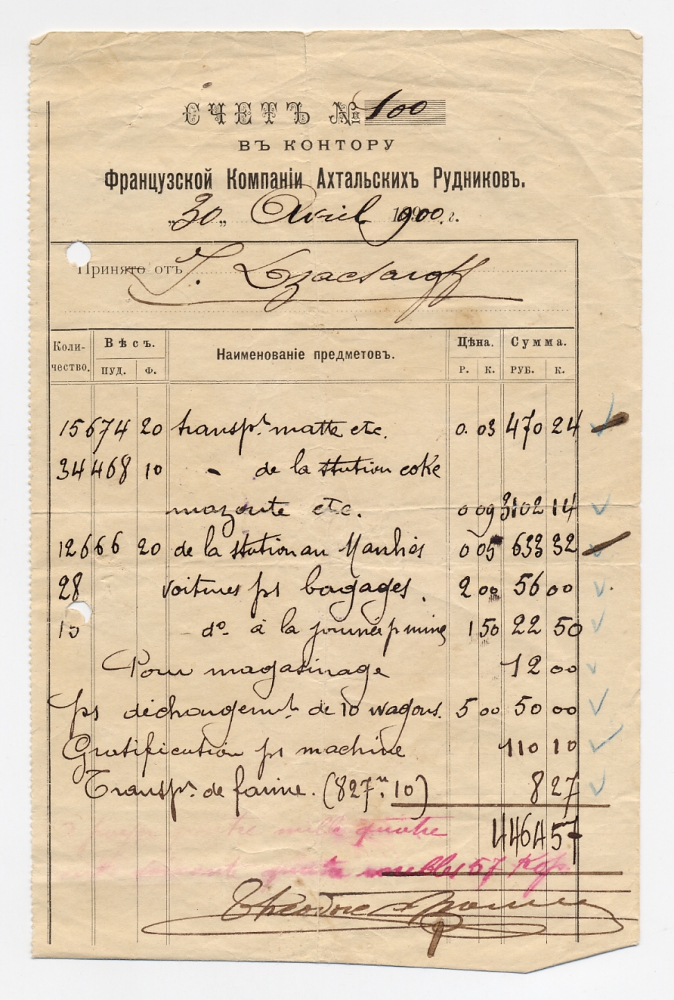 СЧЕТЪ № 100
ВЪ КОНТОРУ
Французской Компаніи Ахтальскихъ Рудниковъ.
„30„ Avril 1900 г.
Принято отъ J.
Коли-чество. Вѣсъ. ПУД. Ф. Наименованіе предметовъ. Цѣна. Р. К. Сумма. РУБ. К.
15674 20 transpt. matte etc. 0.03 470 24
34468 10 - de la station coke
mazoute etc. 0 09 3102 14
12666 20 de la station au Manhès 0 05 633 32
28 voitures ps bagages. 2 00 56 00
15 do. à la journée p mine 1 50 22 50
Pour magasinage 12 00
ps déchargemt. de 10 wagons. 5 00 50 00
Gratification ps machine 110 10
Transpt. de farine. (827 10) 8 27
4464 57
mille quatre
soixante quatre roubles 57 Kop.
Théodore